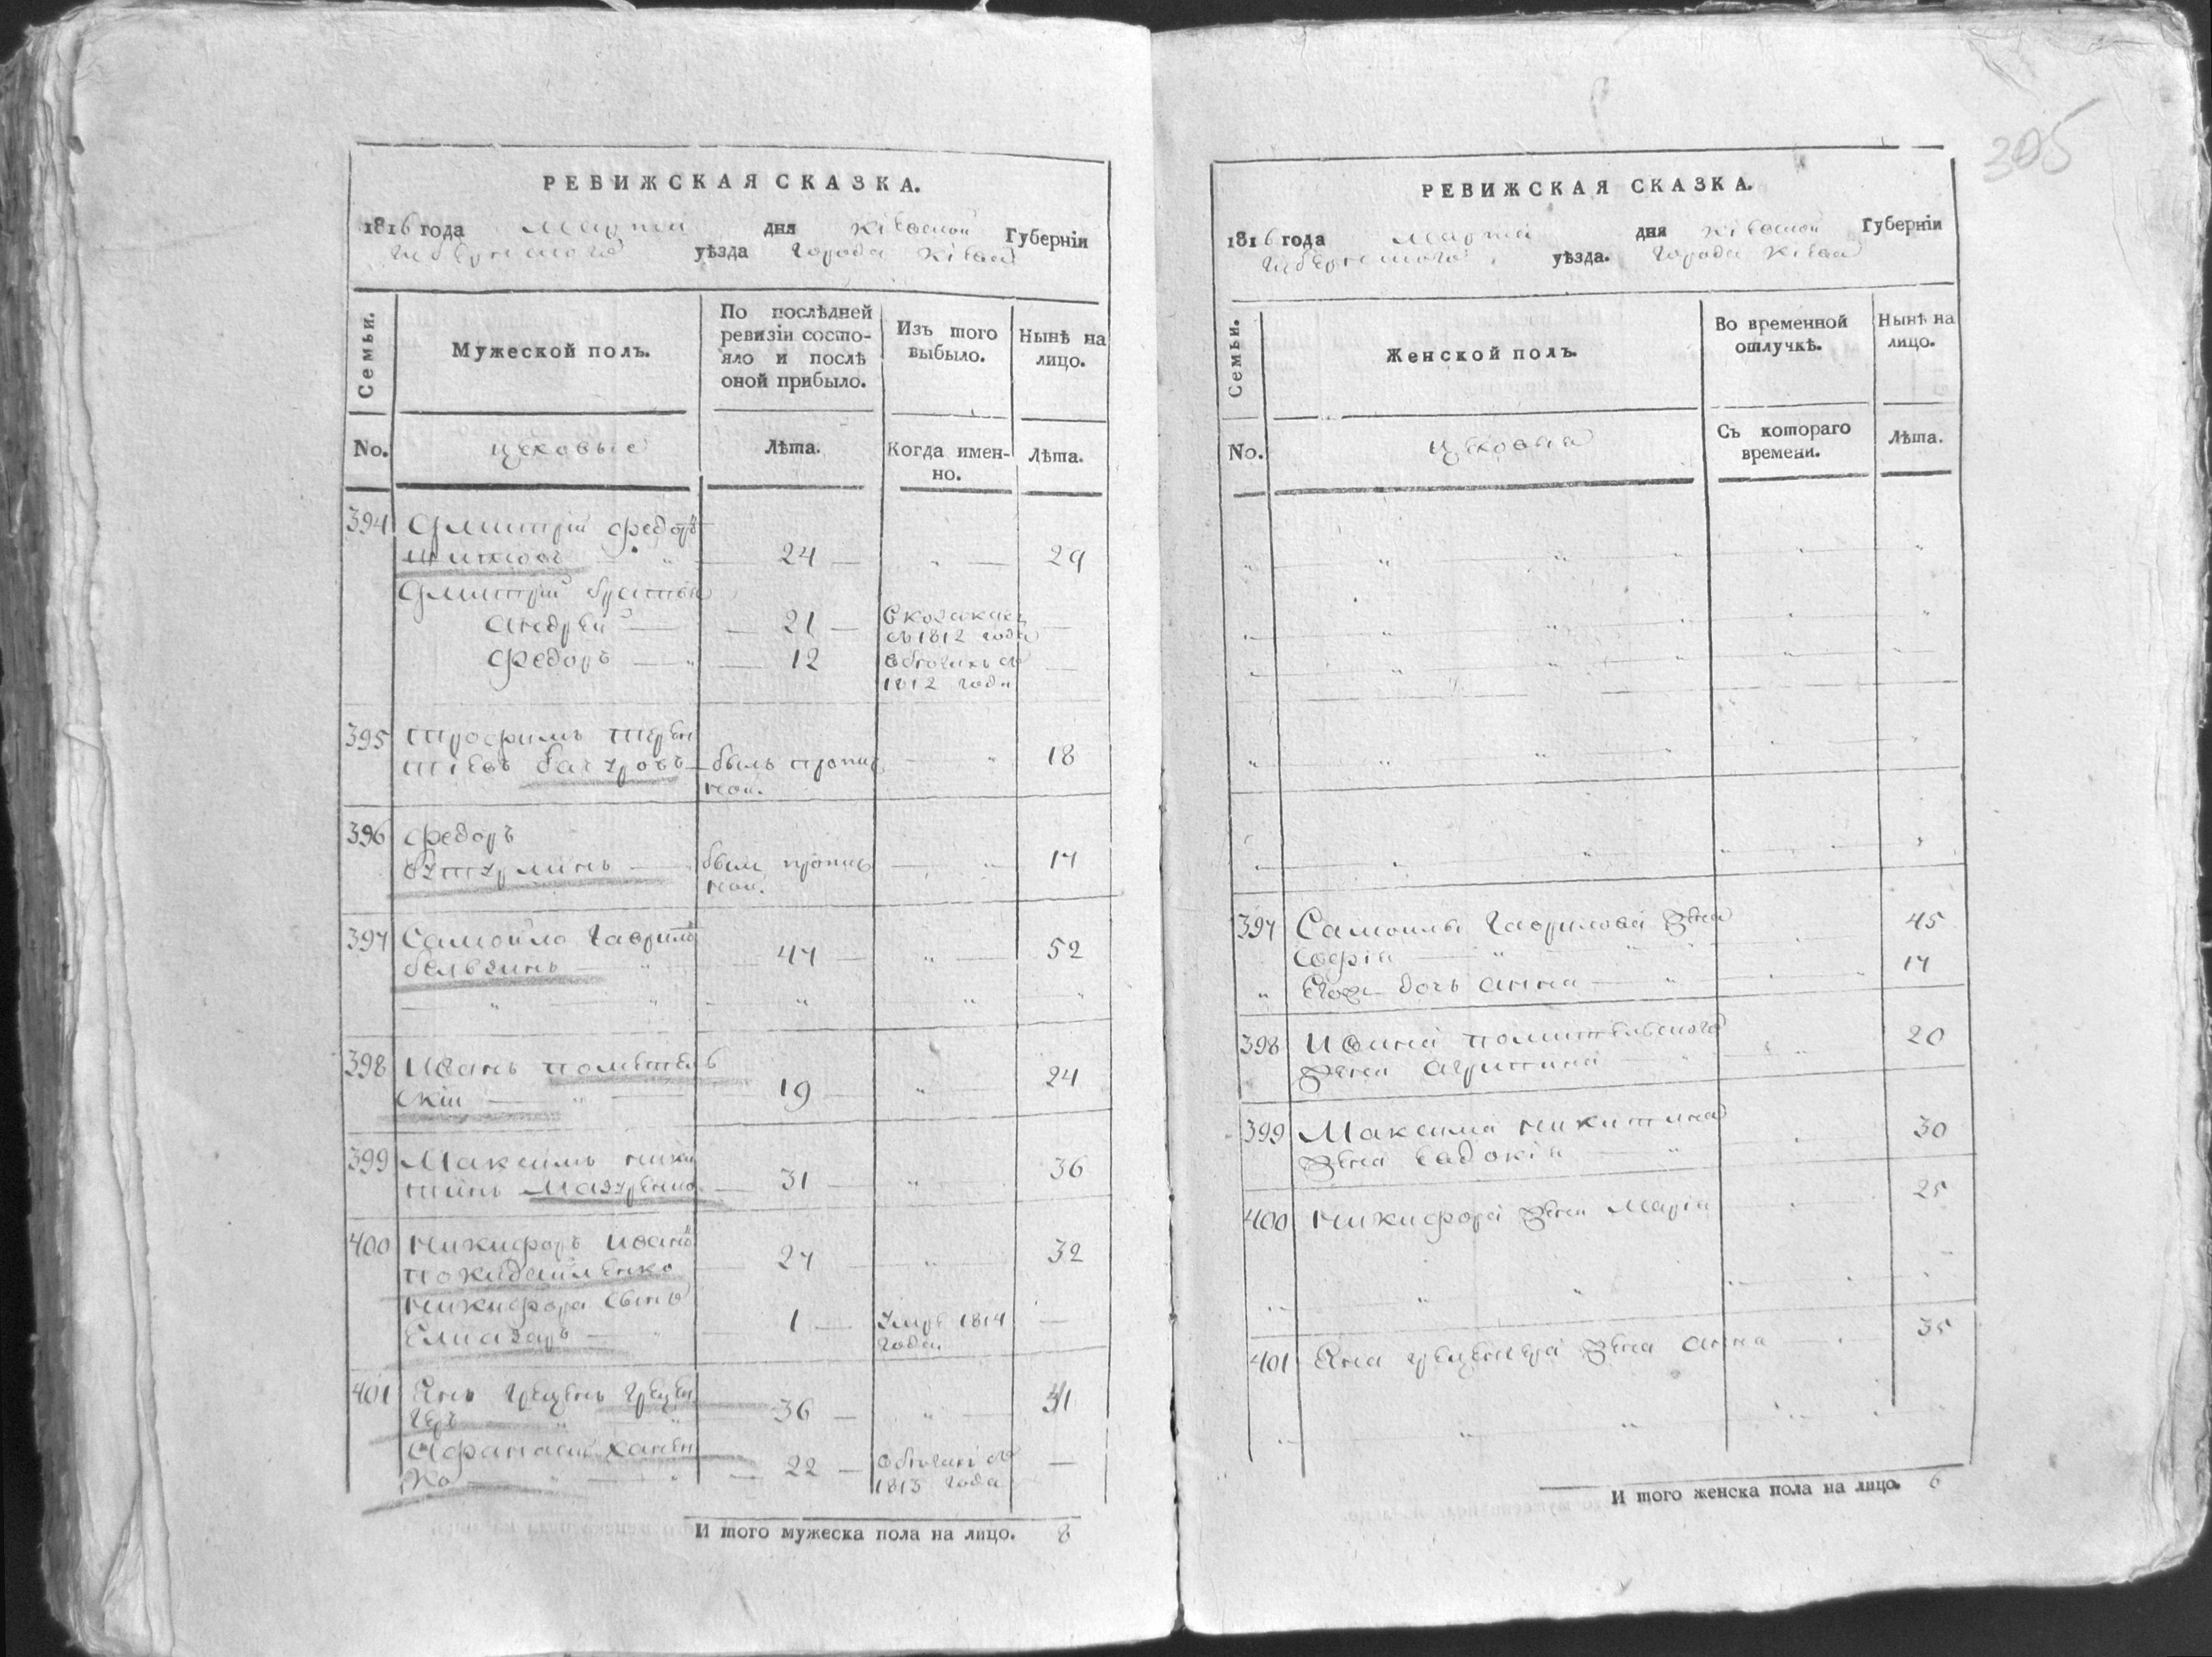 305
РЕВИЖСКАЯ СКАЗКА.
1816 года Марта дня Кіевской Губерніи
Губернского уѣзда города Кіева
Семьи. Мужеской полъ. По послѣдней ревизіи состояло и послѣ оной прибыло. Изъ того выбыло. Нынѣ на лицо.
No. цеховые Лѣта. Когда именно. Лѣта.
394 Дмитрій Федоръ
24 — " — 29
Дмитрія братья
Андрей — 21 —
съ 1812 года —
Федоръ — " — 12 —
1812 года —
395 Трофимъ Терен
тіевъ — былъ пропис — " 18
нои.
396 Федоръ
— былъ пропис — " 17
нои.
397 Самойло Гаврило
— " — 47 — " — 52
— " — " — " — " — "
398 Иванъ Помѣтель
скій — " — 19 — " — 24
399 Максимъ Ники
тинъ Мазуренко — 31 — " 36
400 Никифоръ Иванъ
Покидайленко — 27 — " 32
Никифора сынъ
Елиазаръ — " — 1 — умре 1814 —
года
401 Янъ Грецень Грецен
геръ — " — " 36 — " — 41
Афанасій Ханен
ко — " — " — 22 — —
1813 года
И того мужеска пола на лицо. 8
РЕВИЖСКАЯ СКАЗКА.
1816 года Марта дня Кіевской Губерніи
Губернского уѣзда. города Кіева
Семьи. Женской полъ. Во временной отлучкѣ. Нынѣ на лицо.
No. цеховыя Съ котораго времени. Лѣта.
397 Самоилы Гаврилова жена 45
Софія — "
" Егож дочь Анна — " 17
398 Ивана Помительского 20
жена Агрипина — "
399 Максима Никитина 30
жена Евдокія — "
400 Никифора жена Марія 25
401 Яна Греценгера жена Анна — 35
И того женска пола на лицо. 6